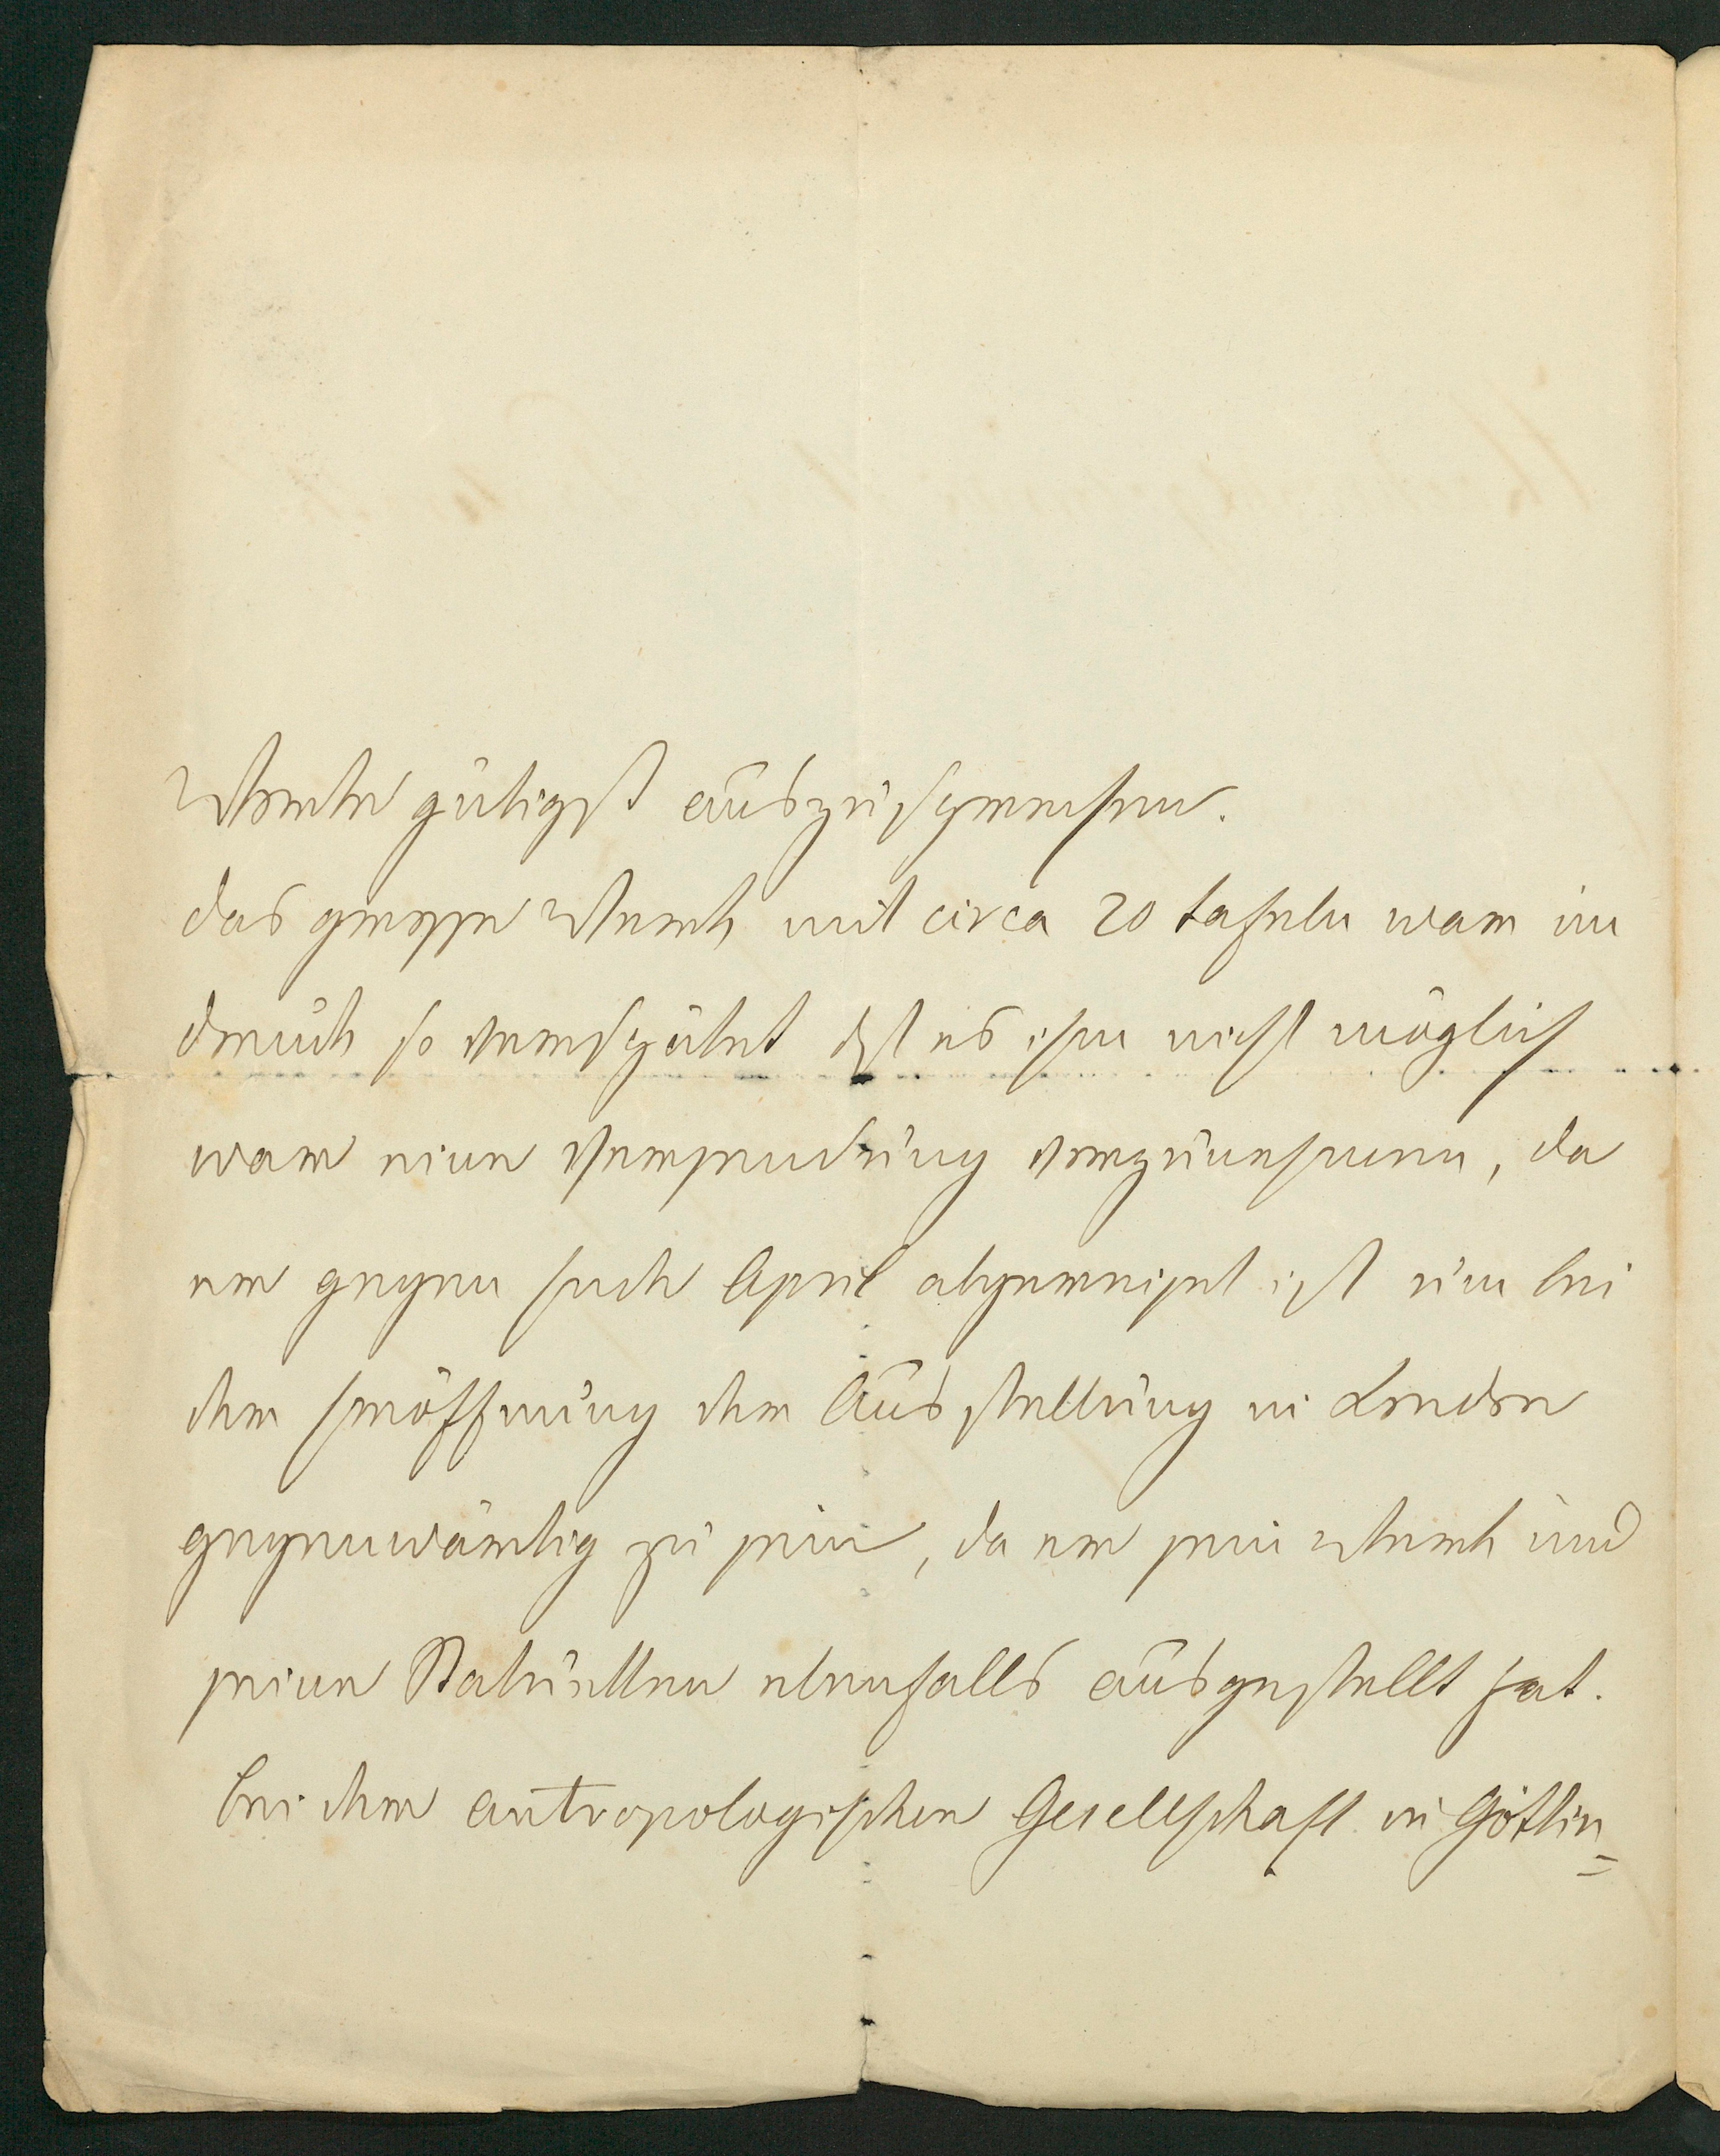 Worte gütigst auszusprechen.
das grosse Werk mit circa 20 tafeln war im
druck so verspätet dſt es ihm nicht möglich
war eine Versendung vorzunehmen, da
er gegen Ende April abgereist ist um bei
der Eröffnung der Ausstellung in London
gegenwärtig zu sein, da er sein Werk und
seine Statuetten ebenfalls ausgestellt hat.
bei der antropologischen Gesellschaft in Göttin=